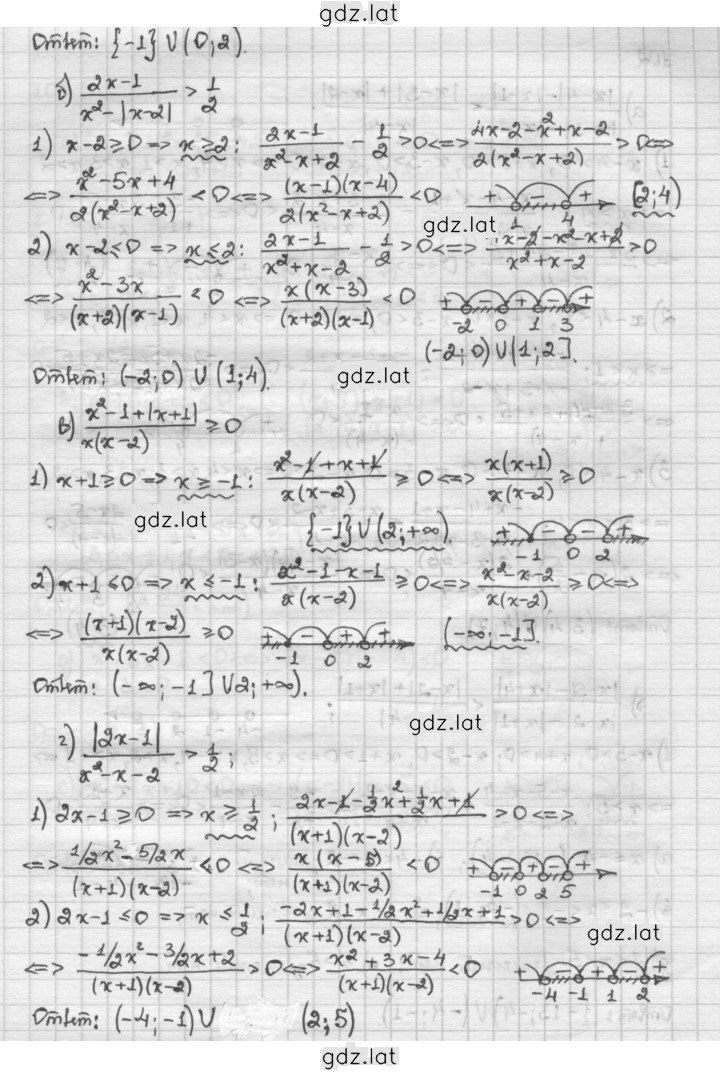 gdz.lat
Ответ: {-1} ∪ (0; 2).
б) (2x-1)/(x²-|x-2|) > 1/2
1) x-2≥0 => x≥2: (2x-1)/(x²-x+2) - 1/2 >0 <=> (4x-2-x²+x-2)/(2(x²-x+2)) > 0 <=>
<=> (x²-5x+4)/(2(x²-x+2)) < 0 <=> ((x-1)(x-4))/(2(x²-x+2)) < 0 + - + 1 4 [2; 4)
gdz.lat
2) x-2≤0 => x≤2: (2x-1)/(x²+x-2) - 1/2 >0 <=> (4x-2-x²-x+2)/(x²+x-2) >0
<=> (x²-3x)/((x+2)(x-1)) < 0 <=> (x(x-3))/((x+2)(x-1)) < 0 + - + - + -2 0 1 3
(-2; 0) ∪ (1; 2].
Ответ: (-2; 0) ∪ (1; 4).
gdz.lat
в) (x²-1+|x+1|)/(x(x-2)) ≥ 0
1) x+1≥0 => x≥-1: (x²-1+x+1)/(x(x-2)) ≥ 0 <=> (x(x+1))/(x(x-2)) ≥ 0
gdz.lat
{-1} ∪ (2; +∞). + - - + -1 0 2
2) x+1≤0 => x≤-1: (x²-1-x-1)/(x(x-2)) ≥ 0 <=> (x²-x-2)/(x(x-2)) ≥ 0 <=>
<=> ((x+1)(x-2))/(x(x-2)) ≥ 0 + - + + -1 0 2 (-∞; -1].
Ответ: (-∞; -1] ∪ 2; +∞).
gdz.lat
г) |2x-1|/(x²-x-2) > 1/2;
1) 2x-1≥0 => x≥1/2; (2x-1-1/2x²+1/2x+1)/((x+1)(x-2)) > 0 <=>
<=> (1/2x²-5/2x)/((x+1)(x-2)) < 0 <=> (x(x-5))/((x+1)(x-2)) < 0 + - + - + -1 0 2 5
2) 2x-1≤0 => x≤1/2; (-2x+1-1/2x²+1/2x+1)/((x+1)(x-2)) > 0 <=>
gdz.lat
<=> (-1/2x²-3/2x+2)/((x+1)(x-2)) > 0 <=> (x²+3x-4)/((x+1)(x-2)) < 0 + - + - + -4 -1 1 2
Ответ: (-4; -1) ∪ (2; 5)
gdz.lat